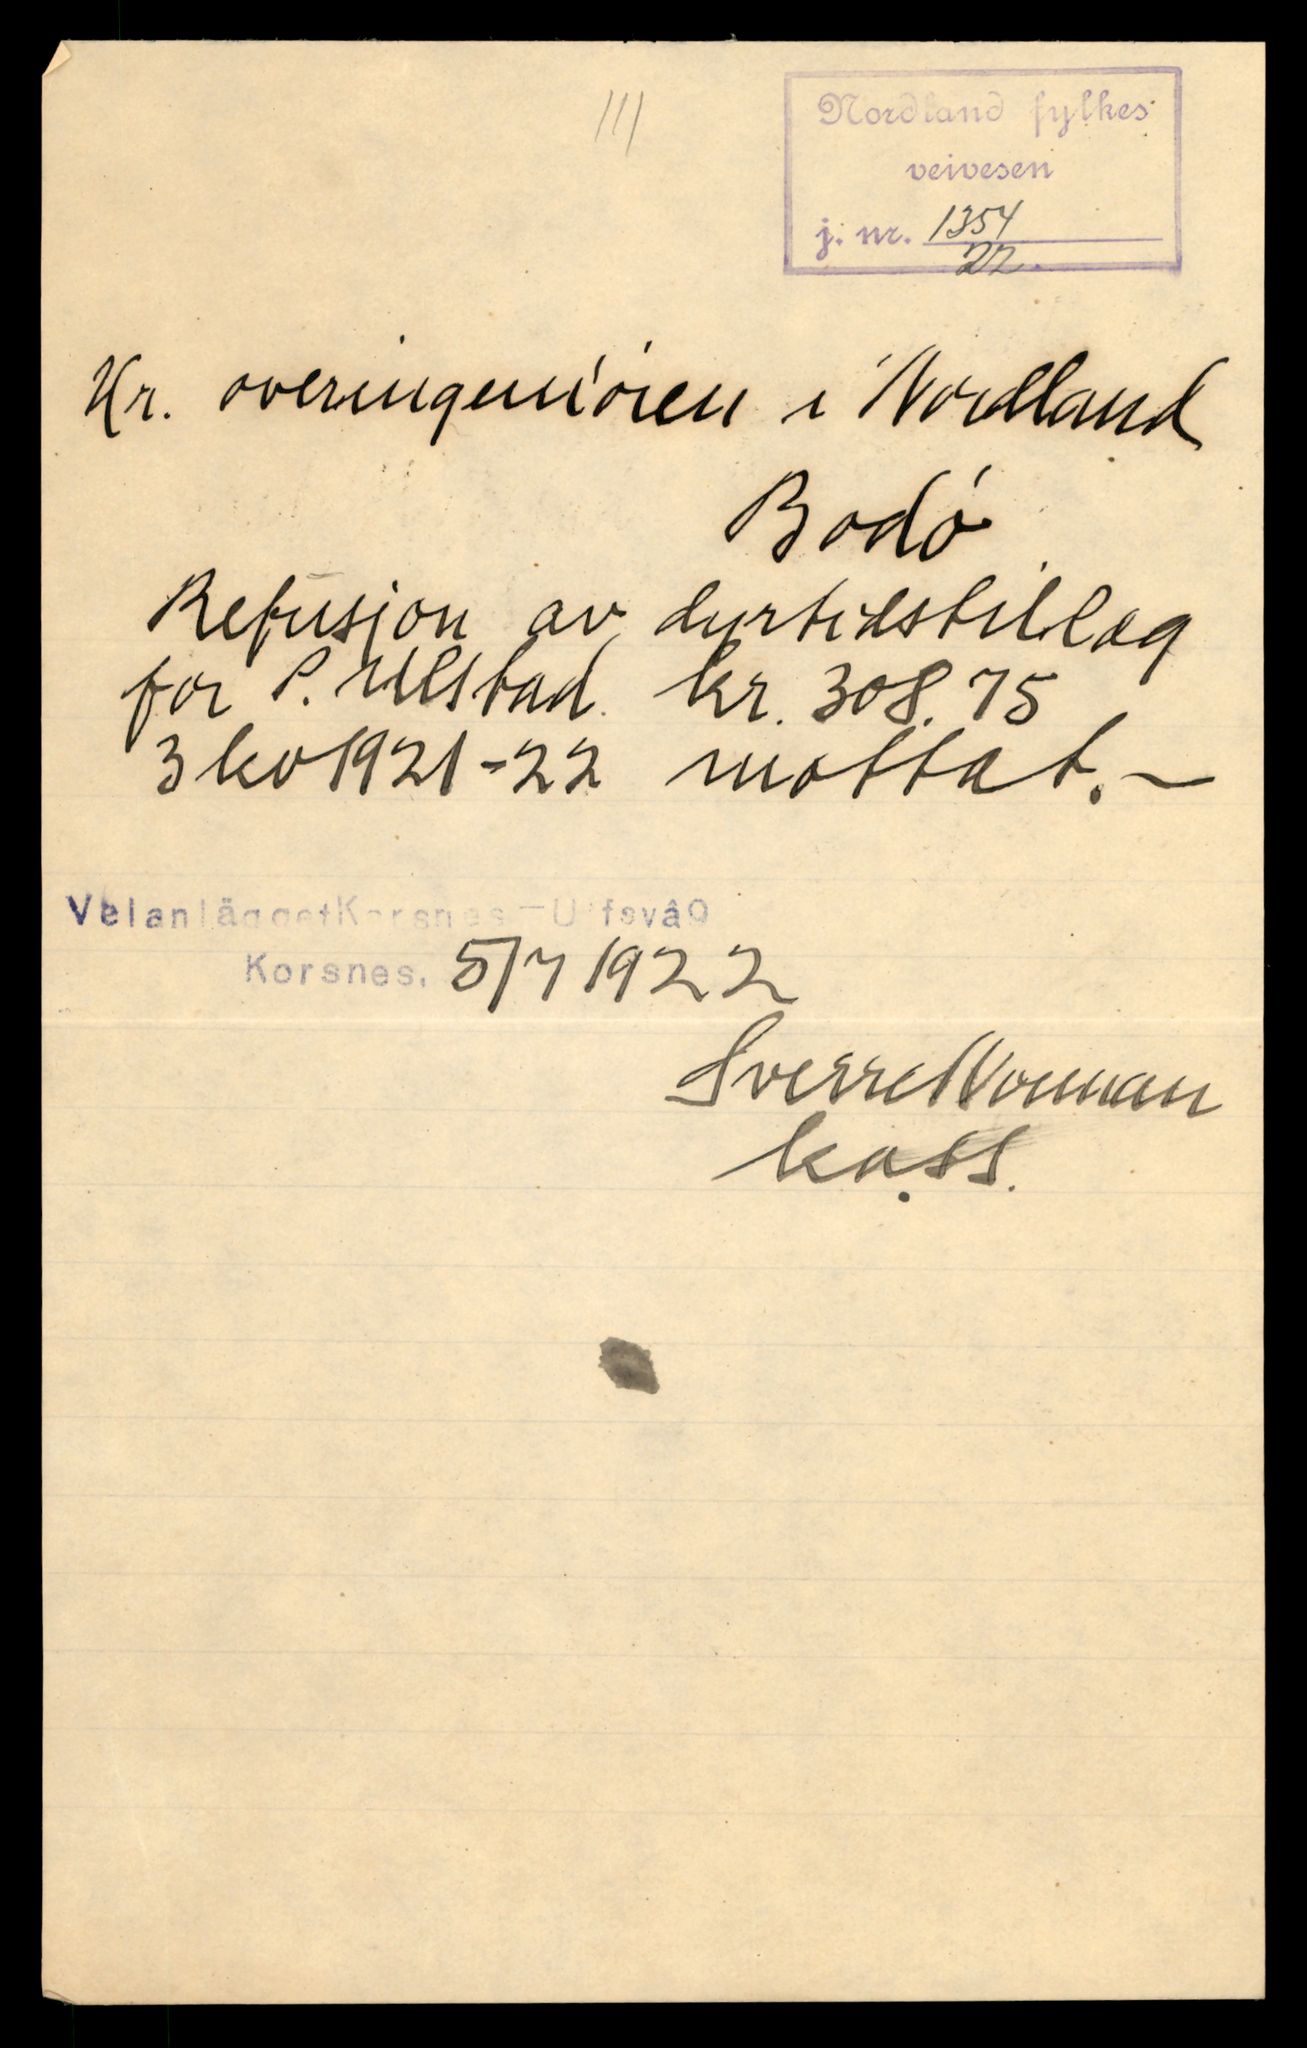 111
Nordland fylkes
veivesen
j. nr. 1354
22.
Hr. overingeniören i Nordland
Bodó
Refusjon av dyrtidstillæg
for P. Ulstad kr. 308.75
3 kv 1921-22 mottat.-
VeianläggetKorsnes-Ulfsvåg
Korsnes. 5/7 1922
Sverre Norman
kass.